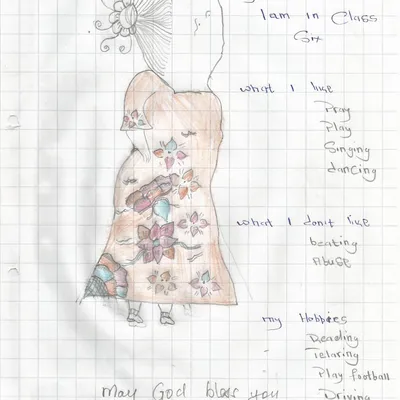 I am in Class
Six
what I like
Pray
Play
Singing
dancing
what I don't like
beating
Abuse
my Hobbies
Reading
Telaring
Play football
Driving
may God bless you